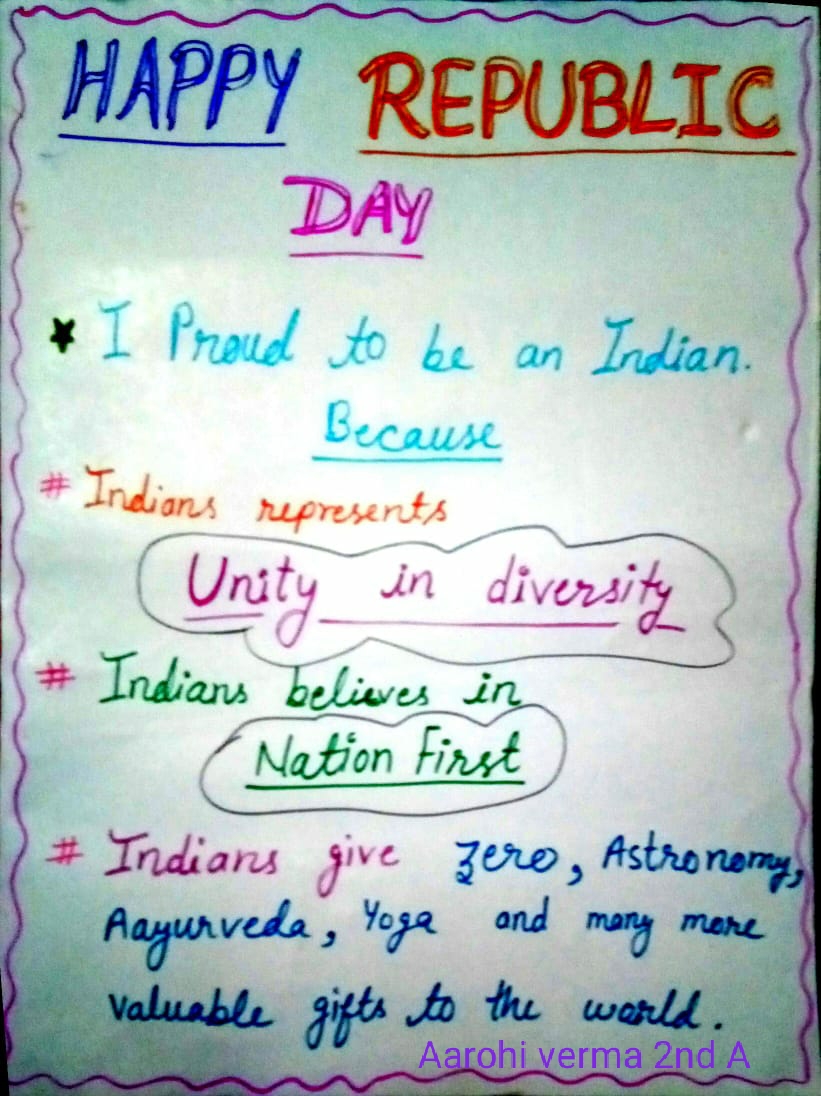 HAPPY REPUBLIC
DAY
★ I Proud to be an Indian.
Because
# Indians represents
Unity in diversity
# Indians believes in
Nation First
# Indians give zero, Astronomy,
Aayurveda, Yoga and many more
valuable gifts to the world.
Aarohi verma 2nd A